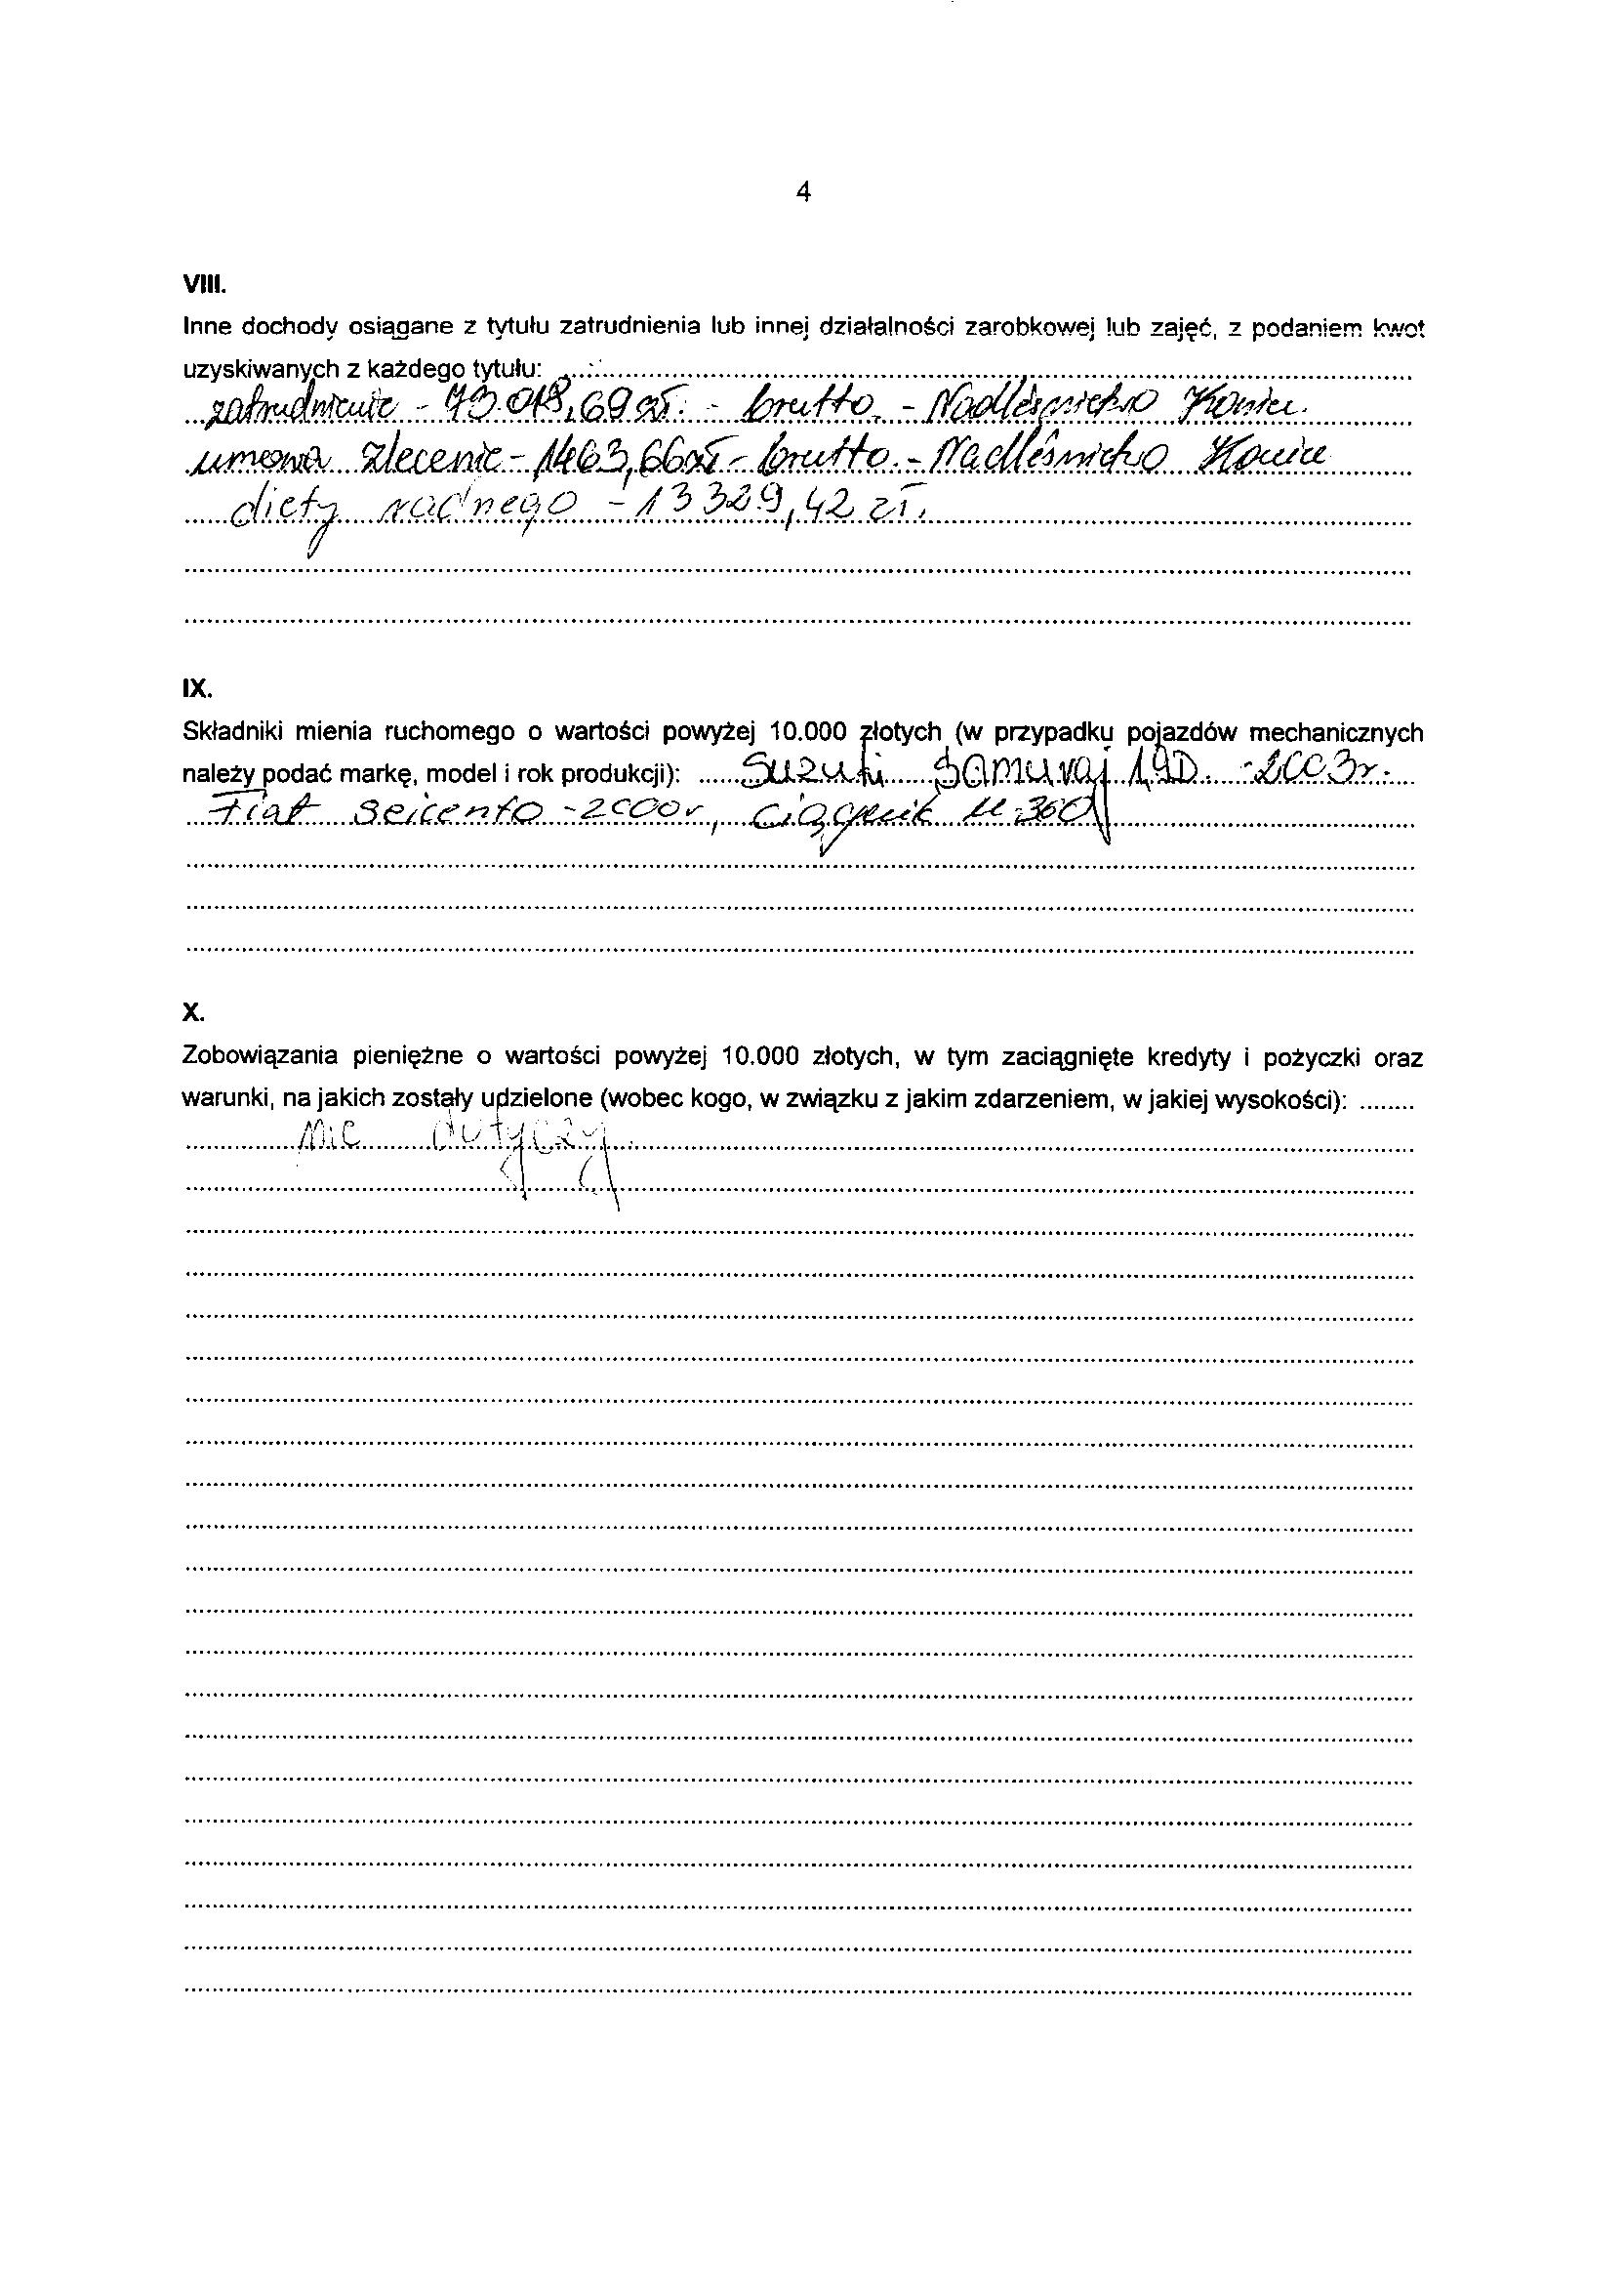 4
VIII.
Inne dochody osiągane z tytułu zatrudnienia lub innej działalności zarobkowej lub zajęć, z podaniem kwot
uzyskiwanych z każdego tytułu:
zatrudnienie - brutto. - Nadleśnictwo
umowa zlecenie - 1463,66 zł - brutto. - Nadleśnictwo
diety radnego - 13 329,42 zł.
IX.
Składniki mienia ruchomego o wartości powyżej 10.000 złotych (w przypadku pojazdów mechanicznych
należy podać markę, model i rok produkcji): Suzuki Samuraj 1,9D. - 2003r.
Fiat Seicento - 2000r, Ciągnik
X.
Zobowiązania pieniężne o wartości powyżej 10.000 złotych, w tym zaciągnięte kredyty i pożyczki oraz
warunki, na jakich zostały udzielone (wobec kogo, w związku z jakim zdarzeniem, w jakiej wysokości):
nie dotyczy.